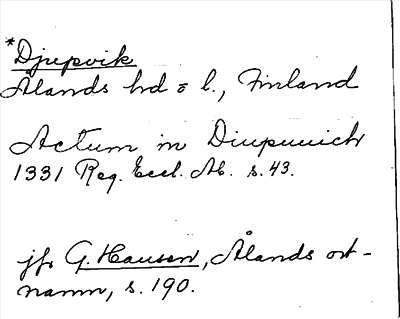 *Djupvik
Ålands hd o l., Finland
Actum in Diupwich
1331 Reg. Eccl. Ab. s. 43.
jfr G. Hausen, Ålands ort-
namn, s. 190.